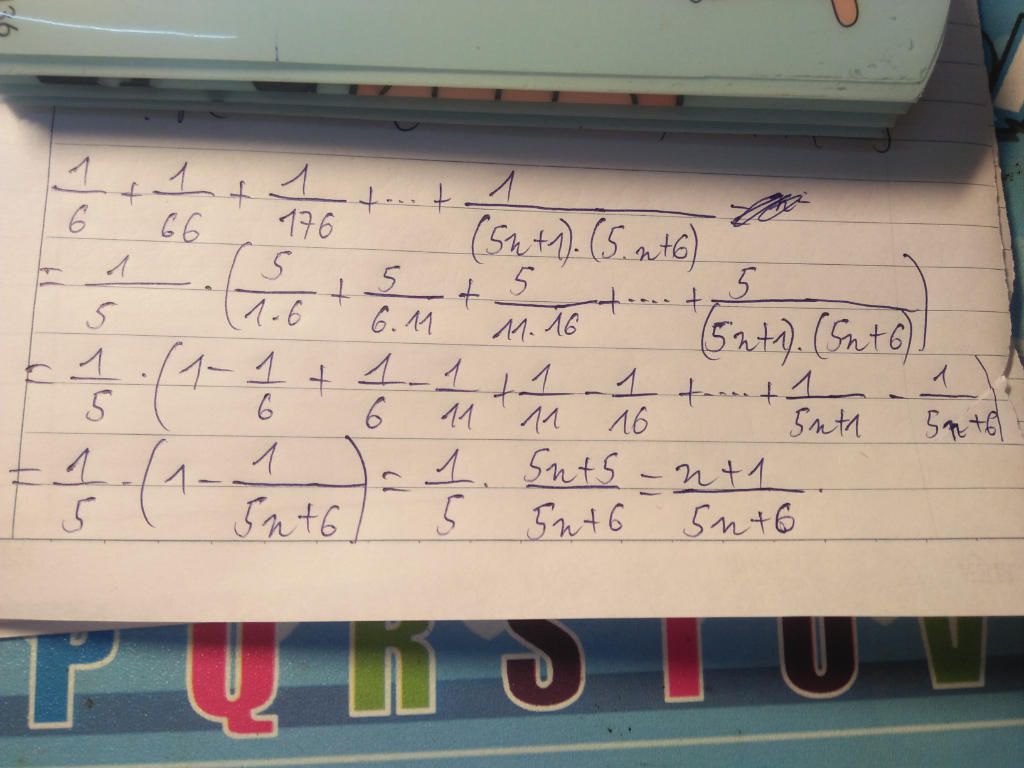 1/6 + 1/66 + 1/176 + ... + 1/((5n+1).(5.n+6))
= 1/5 . (5/(1.6) + 5/(6.11) + 5/(11.16) + .... + 5/((5n+1).(5n+6)))
= 1/5 . (1 - 1/6 + 1/6 - 1/11 + 1/11 - 1/16 + .... + 1/(5n+1) - 1/(5n+6))
= 1/5 . (1 - 1/(5n+6)) = 1/5 . (5n+5)/(5n+6) = (n+1)/(5n+6) .
P Q R S T U V